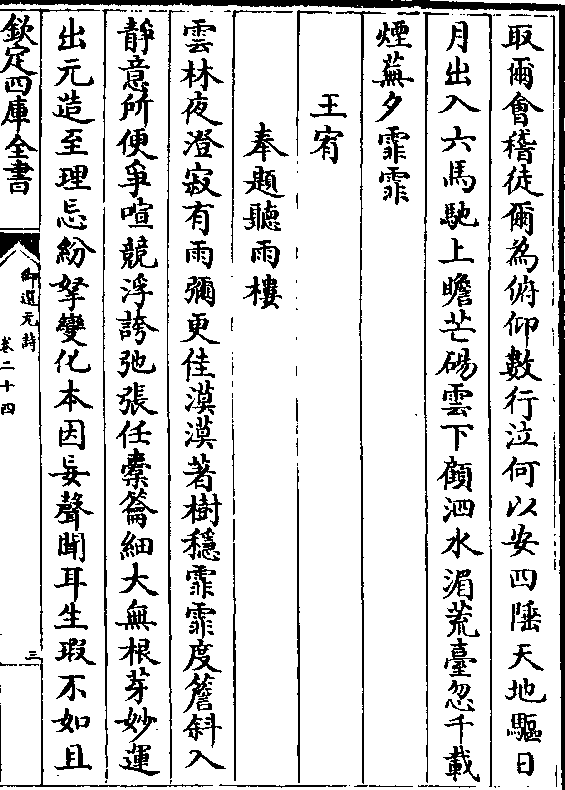 取爾會稽徒爾為俯仰數行泣何以安四陲天地驅日
月出入六馬馳上瞻芒碭雲下顧泗水湄荒臺忽千載
煙蕪夕霏霏
王宥
奉題聽雨樓
雲林夜澄寂有雨彌更佳漠漠著樹穩霏霏度簷斜入
靜意所便爭喧競浮誇弛張任橐籥細大無根芽妙運
出元造至理忘紛拏變化本因妄聲聞耳生瑕不如且
欽定四庫全書
御選元詩
卷二十四
三